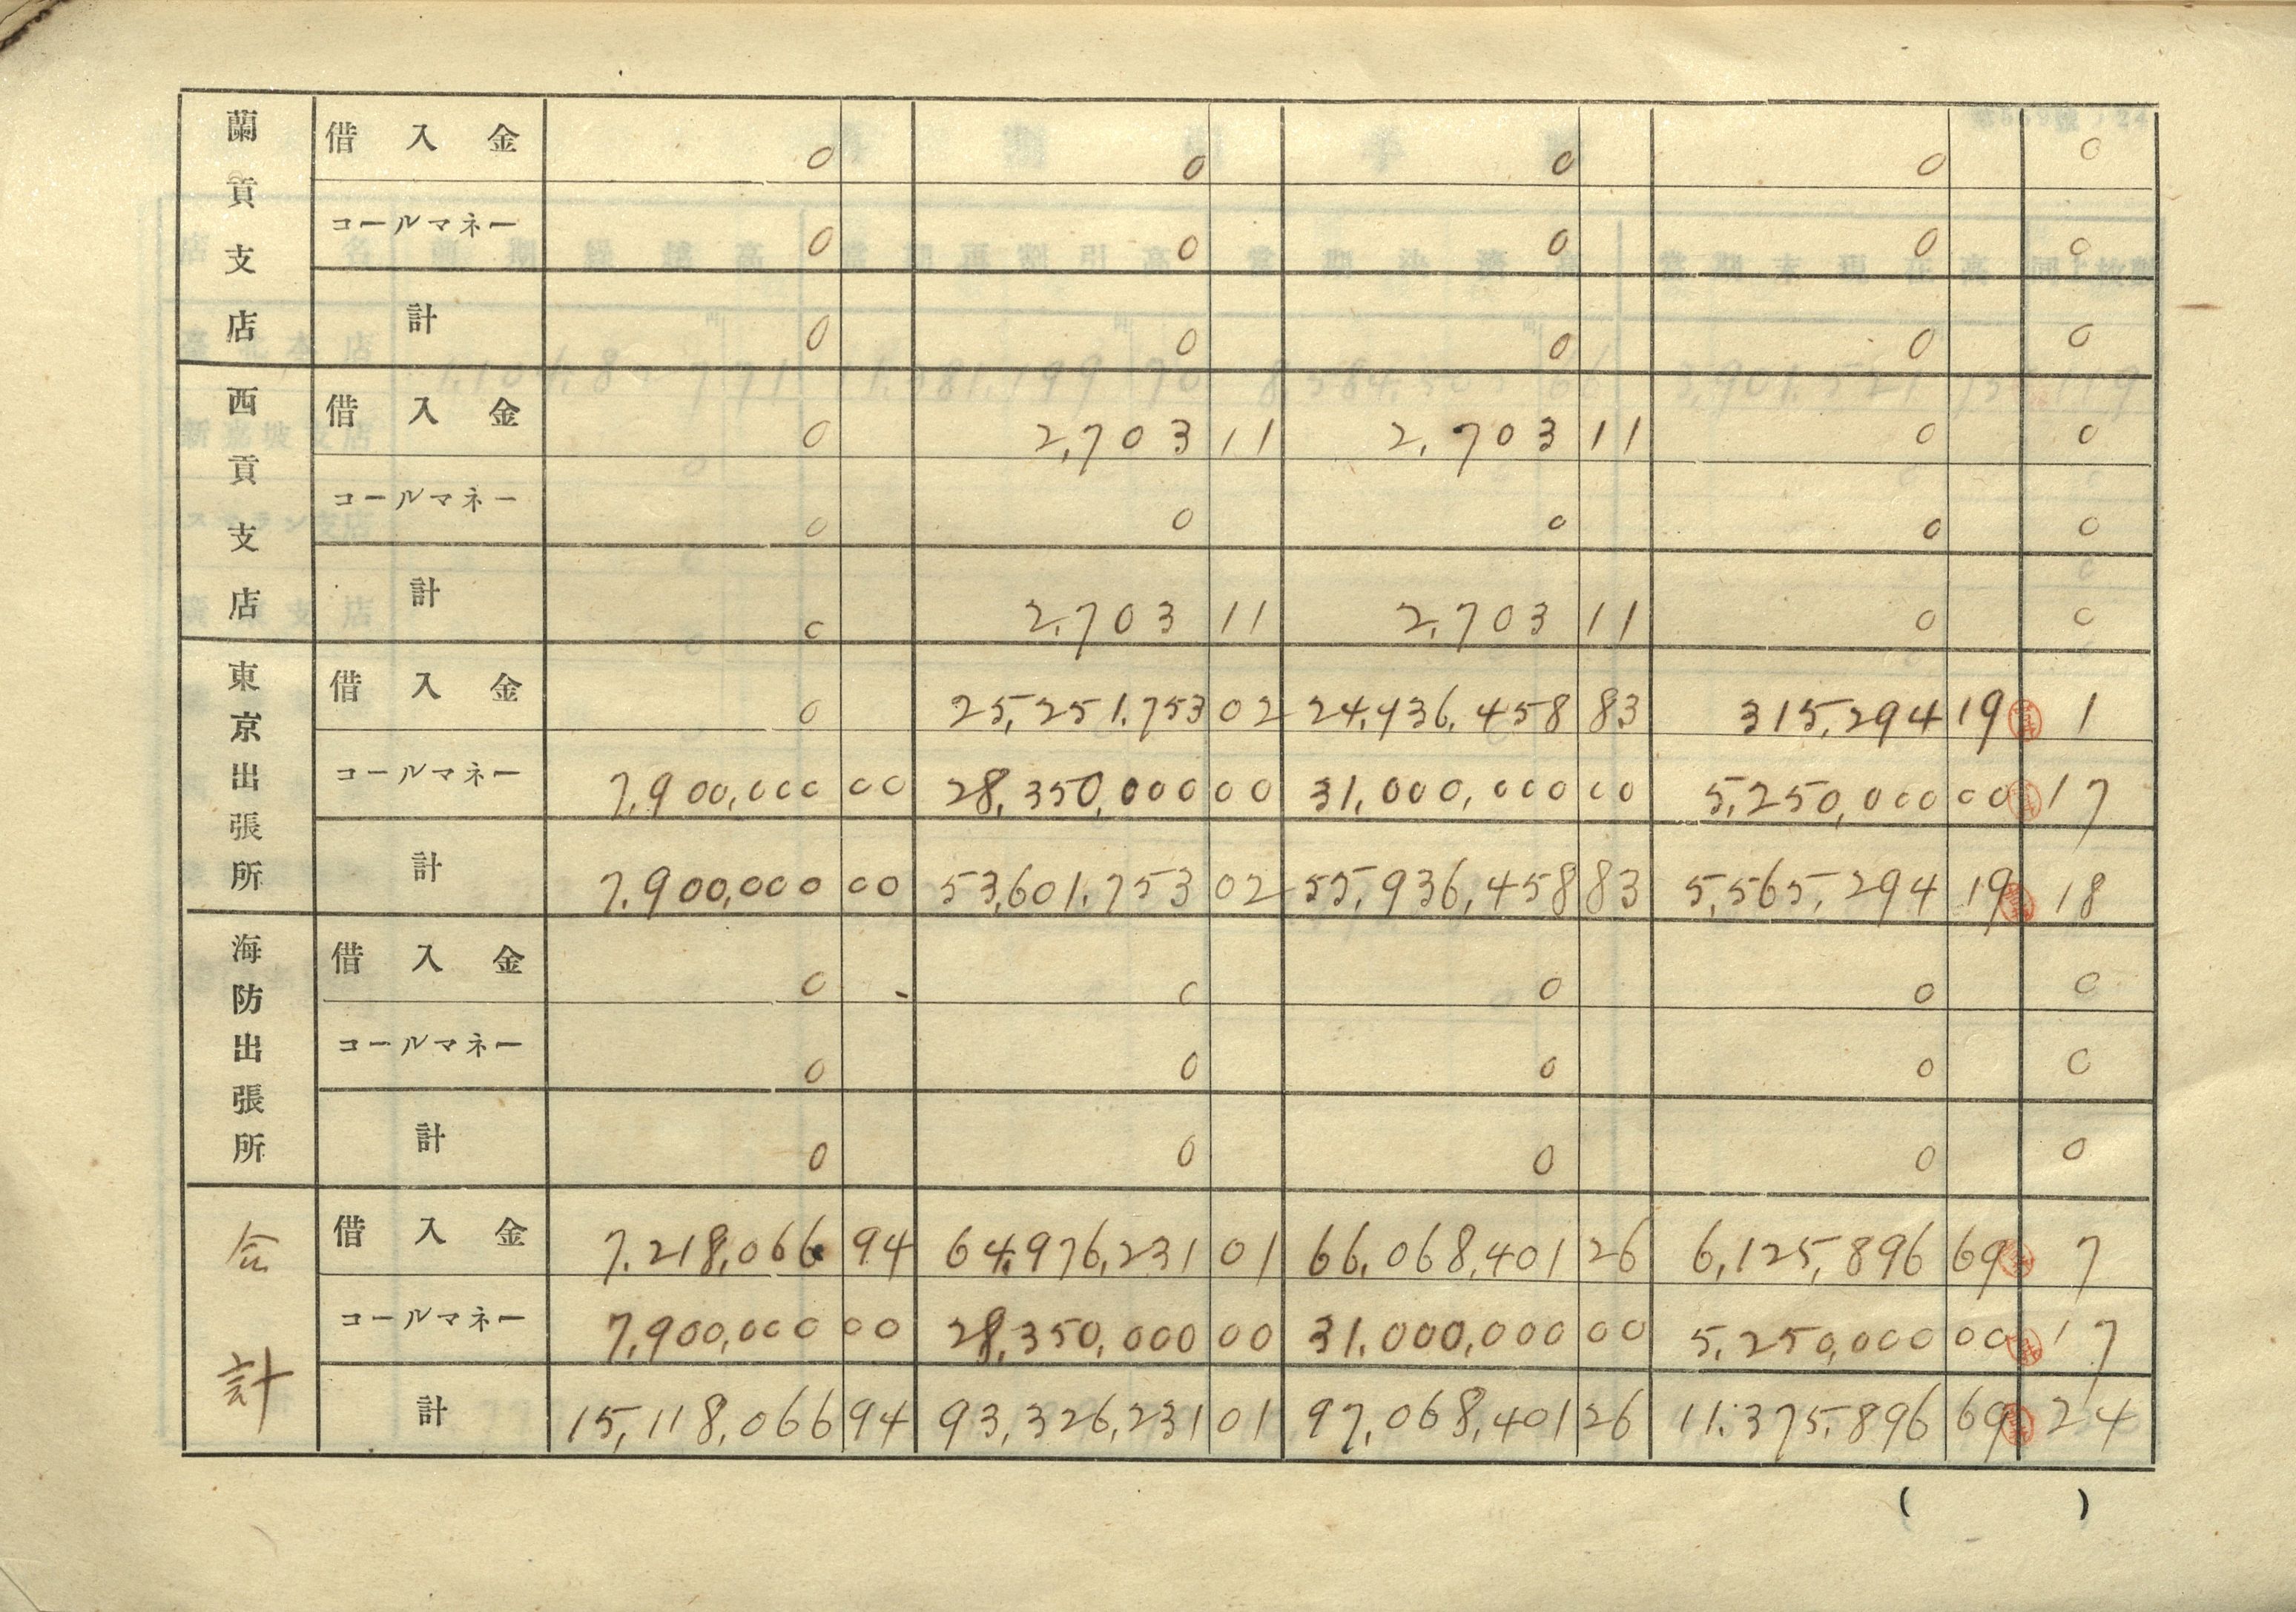 蘭貢支店
借入金 0 0 0 0 0
コールマネー 0 0 0 0 0
計 0 0 0 0 0
西貢支店
借入金 0 2,703 11 2,703 11 0 0
コールマネー 0 0 0 0 0
計 0 2,703 11 2,703 11 0 0
東京出張所
借入金 0 25,251,753 02 24,936,458 83 315,294 19 1
コールマネー 7,900,000 00 28,350,000 00 31,000,000 00 5,250,000 00 17
計 7,900,000 00 53,601,753 02 55,936,458 83 5,565,294 19 18
海防出張所
借入金 0 0 0 0 0
コールマネー 0 0 0 0 0
計 0 0 0 0 0
合計
借入金 7,218,066 94 64,976,231 01 66,068,401 26 6,125,896 69 7
コールマネー 7,900,000 00 28,350,000 00 31,000,000 00 5,250,000 00 17
計 15,118,066 94 93,326,231 01 97,068,401 26 11,375,896 69 24
( )